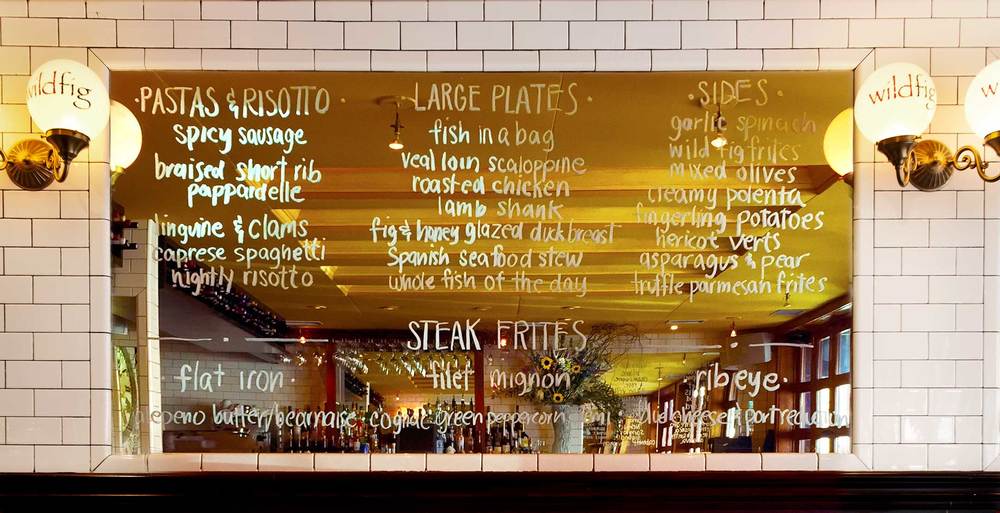 wildfig
wildfig
·PASTAS & RISOTTO·
spicy sausage
braised short rib
pappardelle
linguine & clams
caprese spaghetti
nightly risotto
·LARGE PLATES·
fish in a bag
veal loin scaloppine
roasted chicken
lamb shank
fig & honey glazed duck breast
Spanish seafood stew
whole fish of the day
·SIDES·
garlic spinach
wild fig frites
mixed olives
creamy polenta
fingerling potatoes
hericot verts
asparagus & pear
truffle parmesan frites
STEAK FRITES
flat iron·
filet mignon
ribeye·
butter/bearnaise
cognac green peppercorn
blue cheese & port reduction